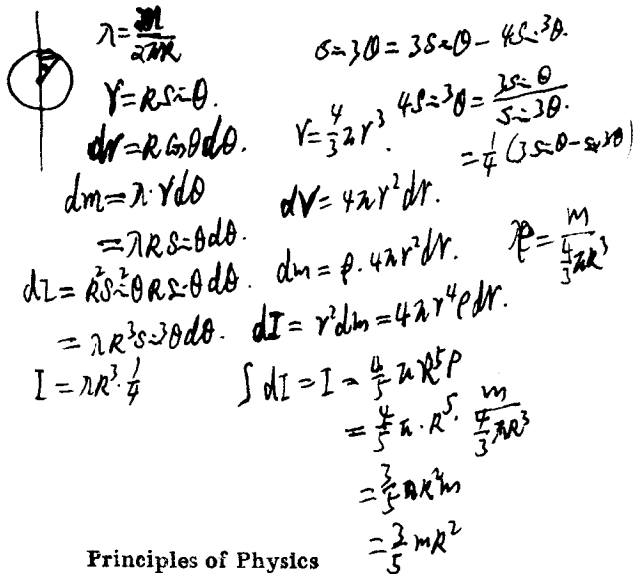 λ = m/2πR
r = R sinθ.
dr = R cosθ dθ.
dm = λ·r dθ
= λR sinθ dθ.
dI = R² sin²θ R sinθ dθ.
= λR³ sin³θ dθ.
I = λR³·1/4
sin3θ = 3sinθ - 4sin³θ.
4sin³θ = 3sinθ/sin3θ.
= 1/4 (3sinθ - sin3θ)
V = 4/3 πr³.
dV = 4πr² dr.
ρ = m/(4/3 πR³)
dm = ρ·4πr² dr.
dI = r² dm = 4πr⁴ρ dr.
∫dI = I = 4/5 πR⁵ρ
= 4/5 π·R⁵· m/(4/3 πR³)
= 3/5 R²m
= 3/5 mR²
Principles of Physics